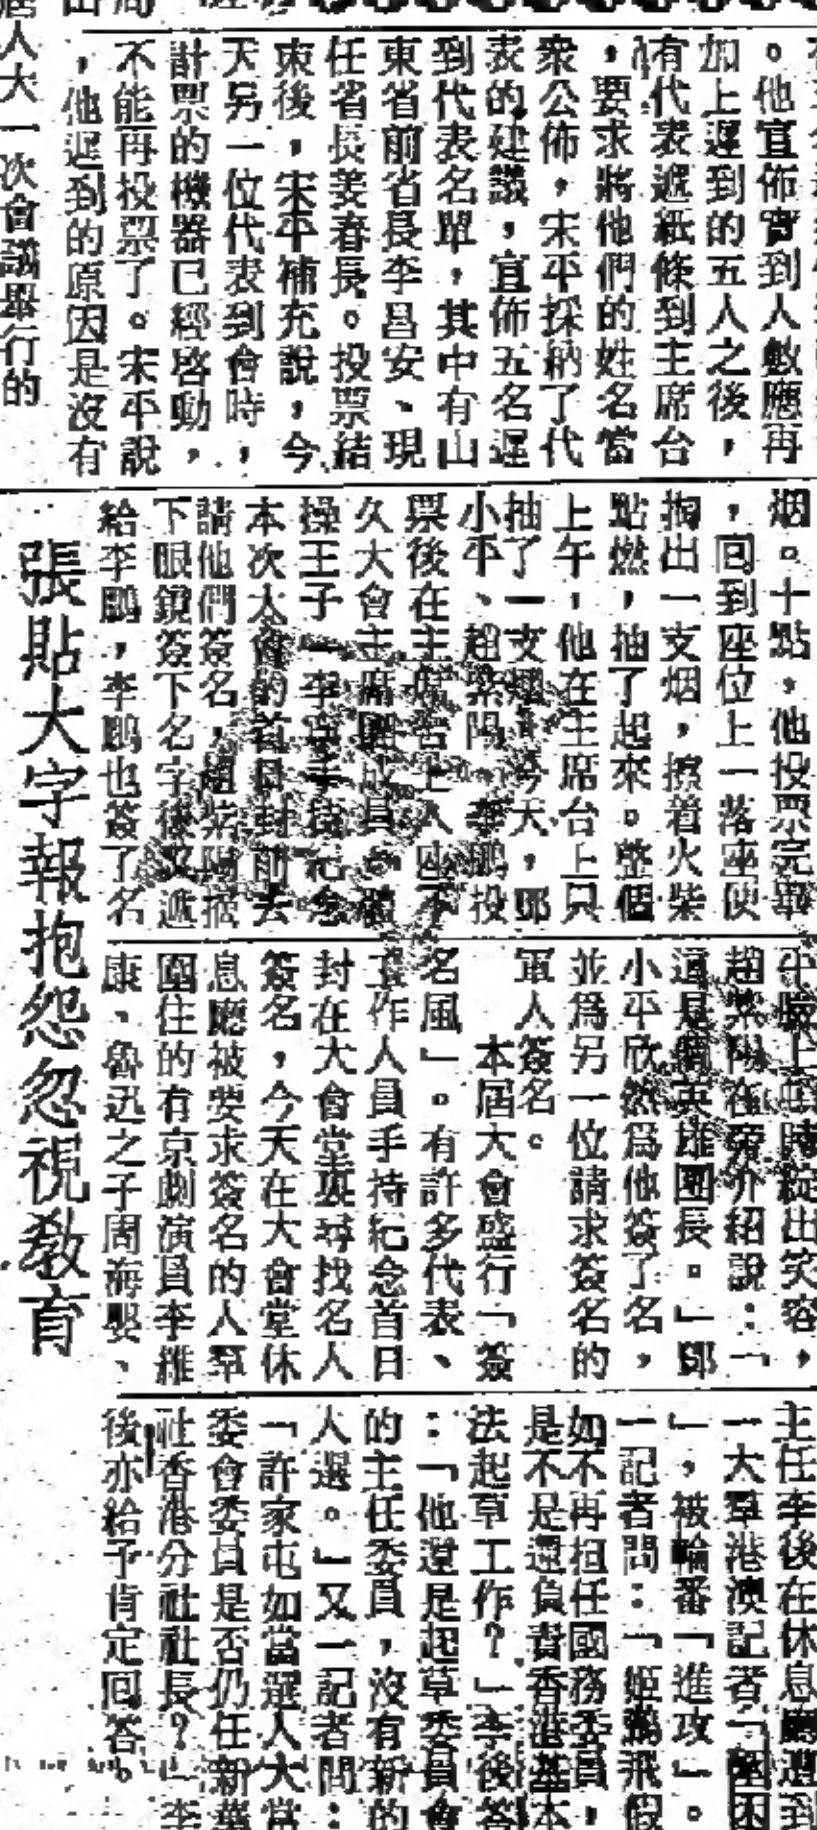 。他宣佈實到人數應再
加上遲到的五人之後，
有代表遞紙條到主席台
，要求將他們的姓名當
衆公佈，宋平採納了代
表的建議，宣佈五名遲
到代表名單，其中有山
東省前省長李昌安、現
任省長姜春長。投票結
束後，宋平補充說，今
天另一位代表到會時，
計票的機器已經啓動，
不能再投票了。宋平說
，他遲到的原因是沒有
居人大一次會議舉行的
烟。十點，他投票完畢
，回到座位上一落座便
掏出一支烟，擦着火柴
點燃，抽了起來。整個
上午，他在主席台上只
抽了一支烟。今天，鄧
小平、趙紫陽、李鵬投
票後在主席台上入座不
久大會主席團成員、體
操王子－李寧手持紀念
本次大會的首日封前去
請他們簽名，趙紫陽摘
下眼鏡簽下名字後又遞
給李鵬，李鵬也簽了名
張貼大字報抱怨忽視教育
平臉上頓時綻出笑容，
趙紫陽在旁介紹說：「
這是個英雄團長。」鄧
小平欣然爲他簽了名，
並爲另一位請求簽名的
軍人簽名。
本屆大會盛行「簽
名風」。有許多代表、
工作人員手持紀念首日
封在大會堂裏尋找名人
簽名，今天在大會堂休
息廳被要求簽名的人羣
圍住的有京劇演員李維
康、魯迅之子周海嬰、
主任李後在休息廳遇到
一大羣港澳記者「圍困
」，被輪番「進攻」。
一記者問：「姬鵬飛假
如不再担任國務委員，
是不是還負責香港基本
法起草工作？」李後答
：「他還是起草委員會
的主任委員，沒有新的
人選。」又一記者問：
「許家屯如當選人大常
委會委員是否仍任新華
社香港分社社長？」李
後亦給予肯定回答。